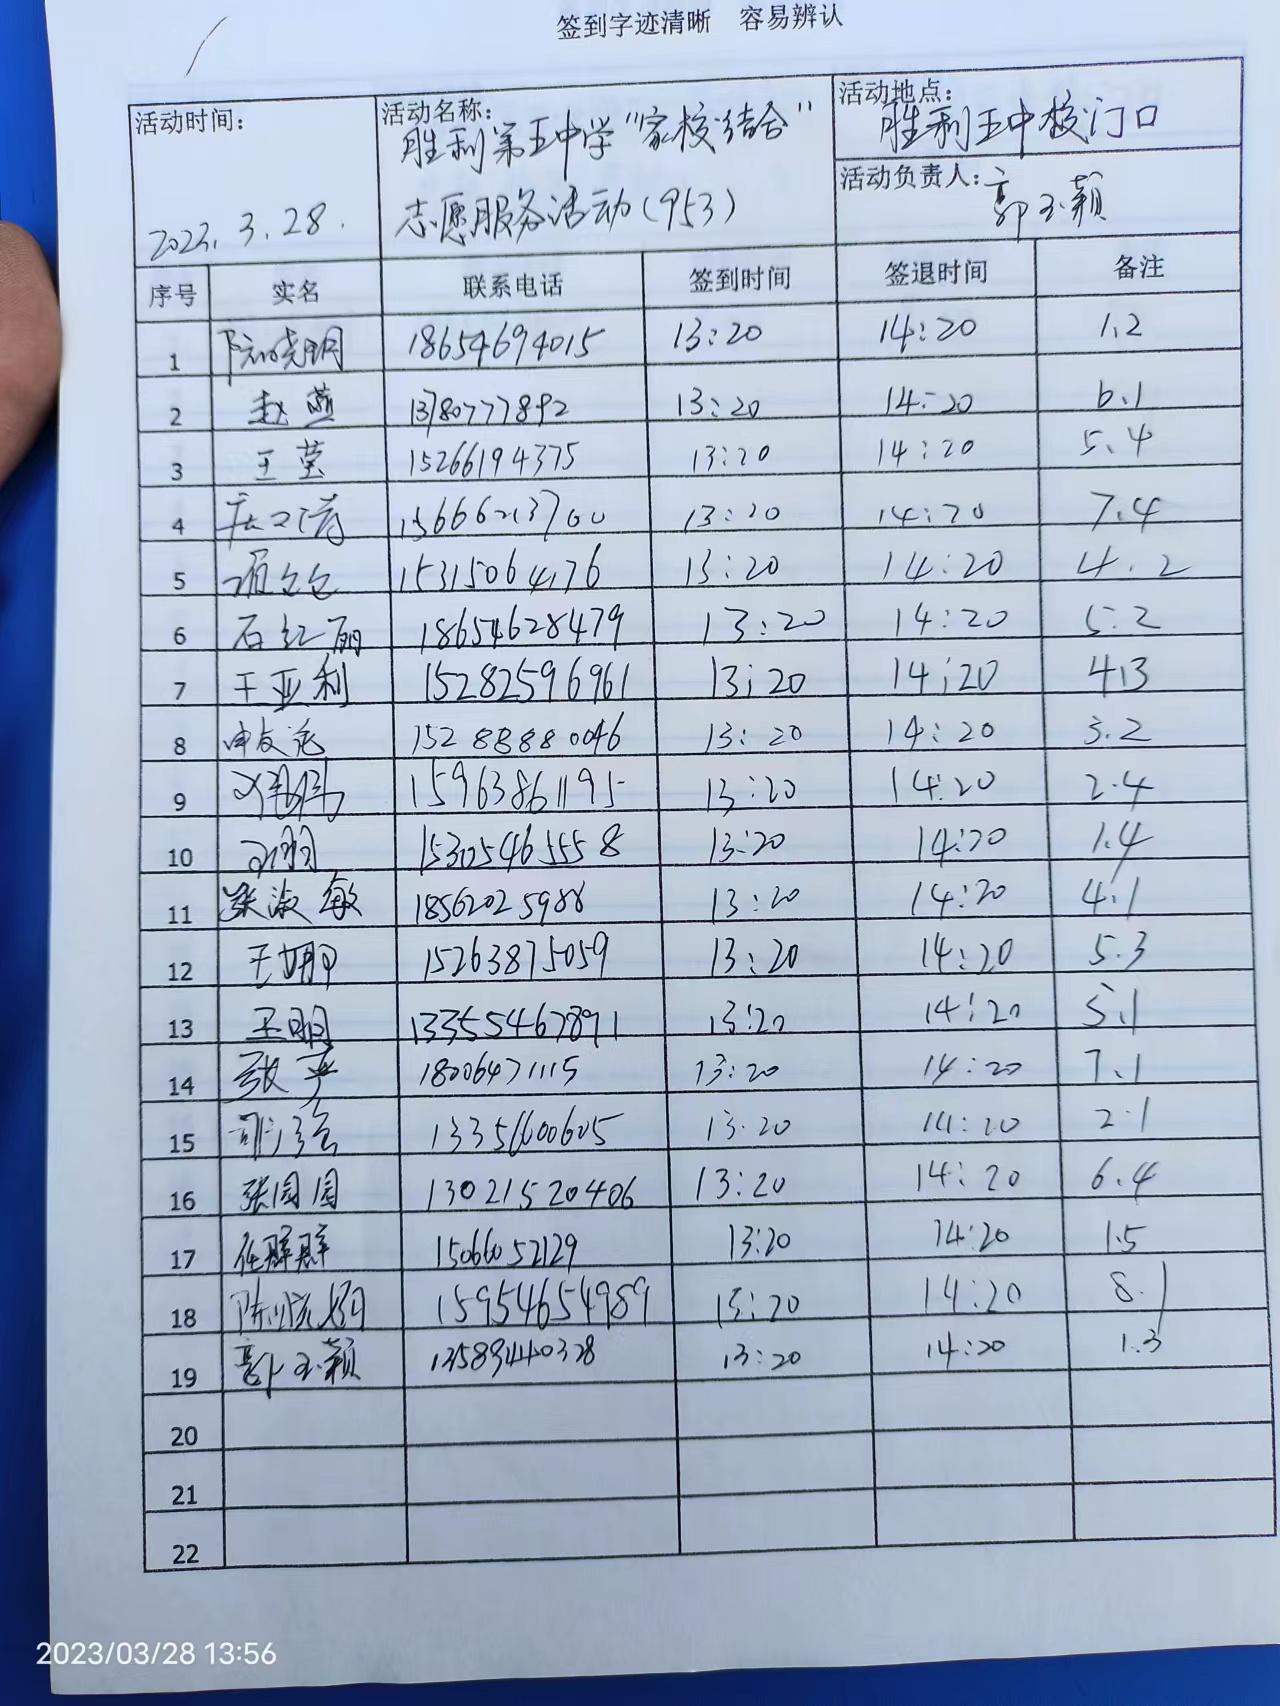 签到字迹清晰 容易辨认
活动时间: 2023.3.28.
活动名称: 胜利第五中学"家校结合"
志愿服务活动(953)
活动地点: 胜利五中校门口
活动负责人: 郭玉颖
序号 实名 联系电话 签到时间 签退时间 备注
1 18654694015 13:20 14:20 1.2
2 赵燕 13780777892 13:20 14:20 6.1
3 王莹 15266194375 13:20 14:20 5.4
4 13:20 14:20 7.4
5 15315064176 13:20 14:20 4.2
6 石红丽 18654628479 13:20 14:20 5.2
7 王亚利 15282596961 13:20 14:20 4.3
8 15288880046 13:20 14:20 3.2
9 15963861195 13:20 14:20 2.4
10 15305465558 13:20 14:20 1.4
11 张淑敏 18562025988 13:20 14:20 4.1
12 王娜 15263875059 13:20 14:20 5.3
13 王明 13355467891 13:20 14:20 5.1
14 18006471115 13:20 14:20 7.1
15 13356600605 13:20 14:20 2.1
16 张园园 13021520406 13:20 14:20 6.4
17 任群群 15066052129 13:20 14:20 1.5
18 15954654989 13:20 14:20 8.1
19 郭玉颖 13589440328 13:20 14:20 1.3
20
21
22
2023/03/28 13:56